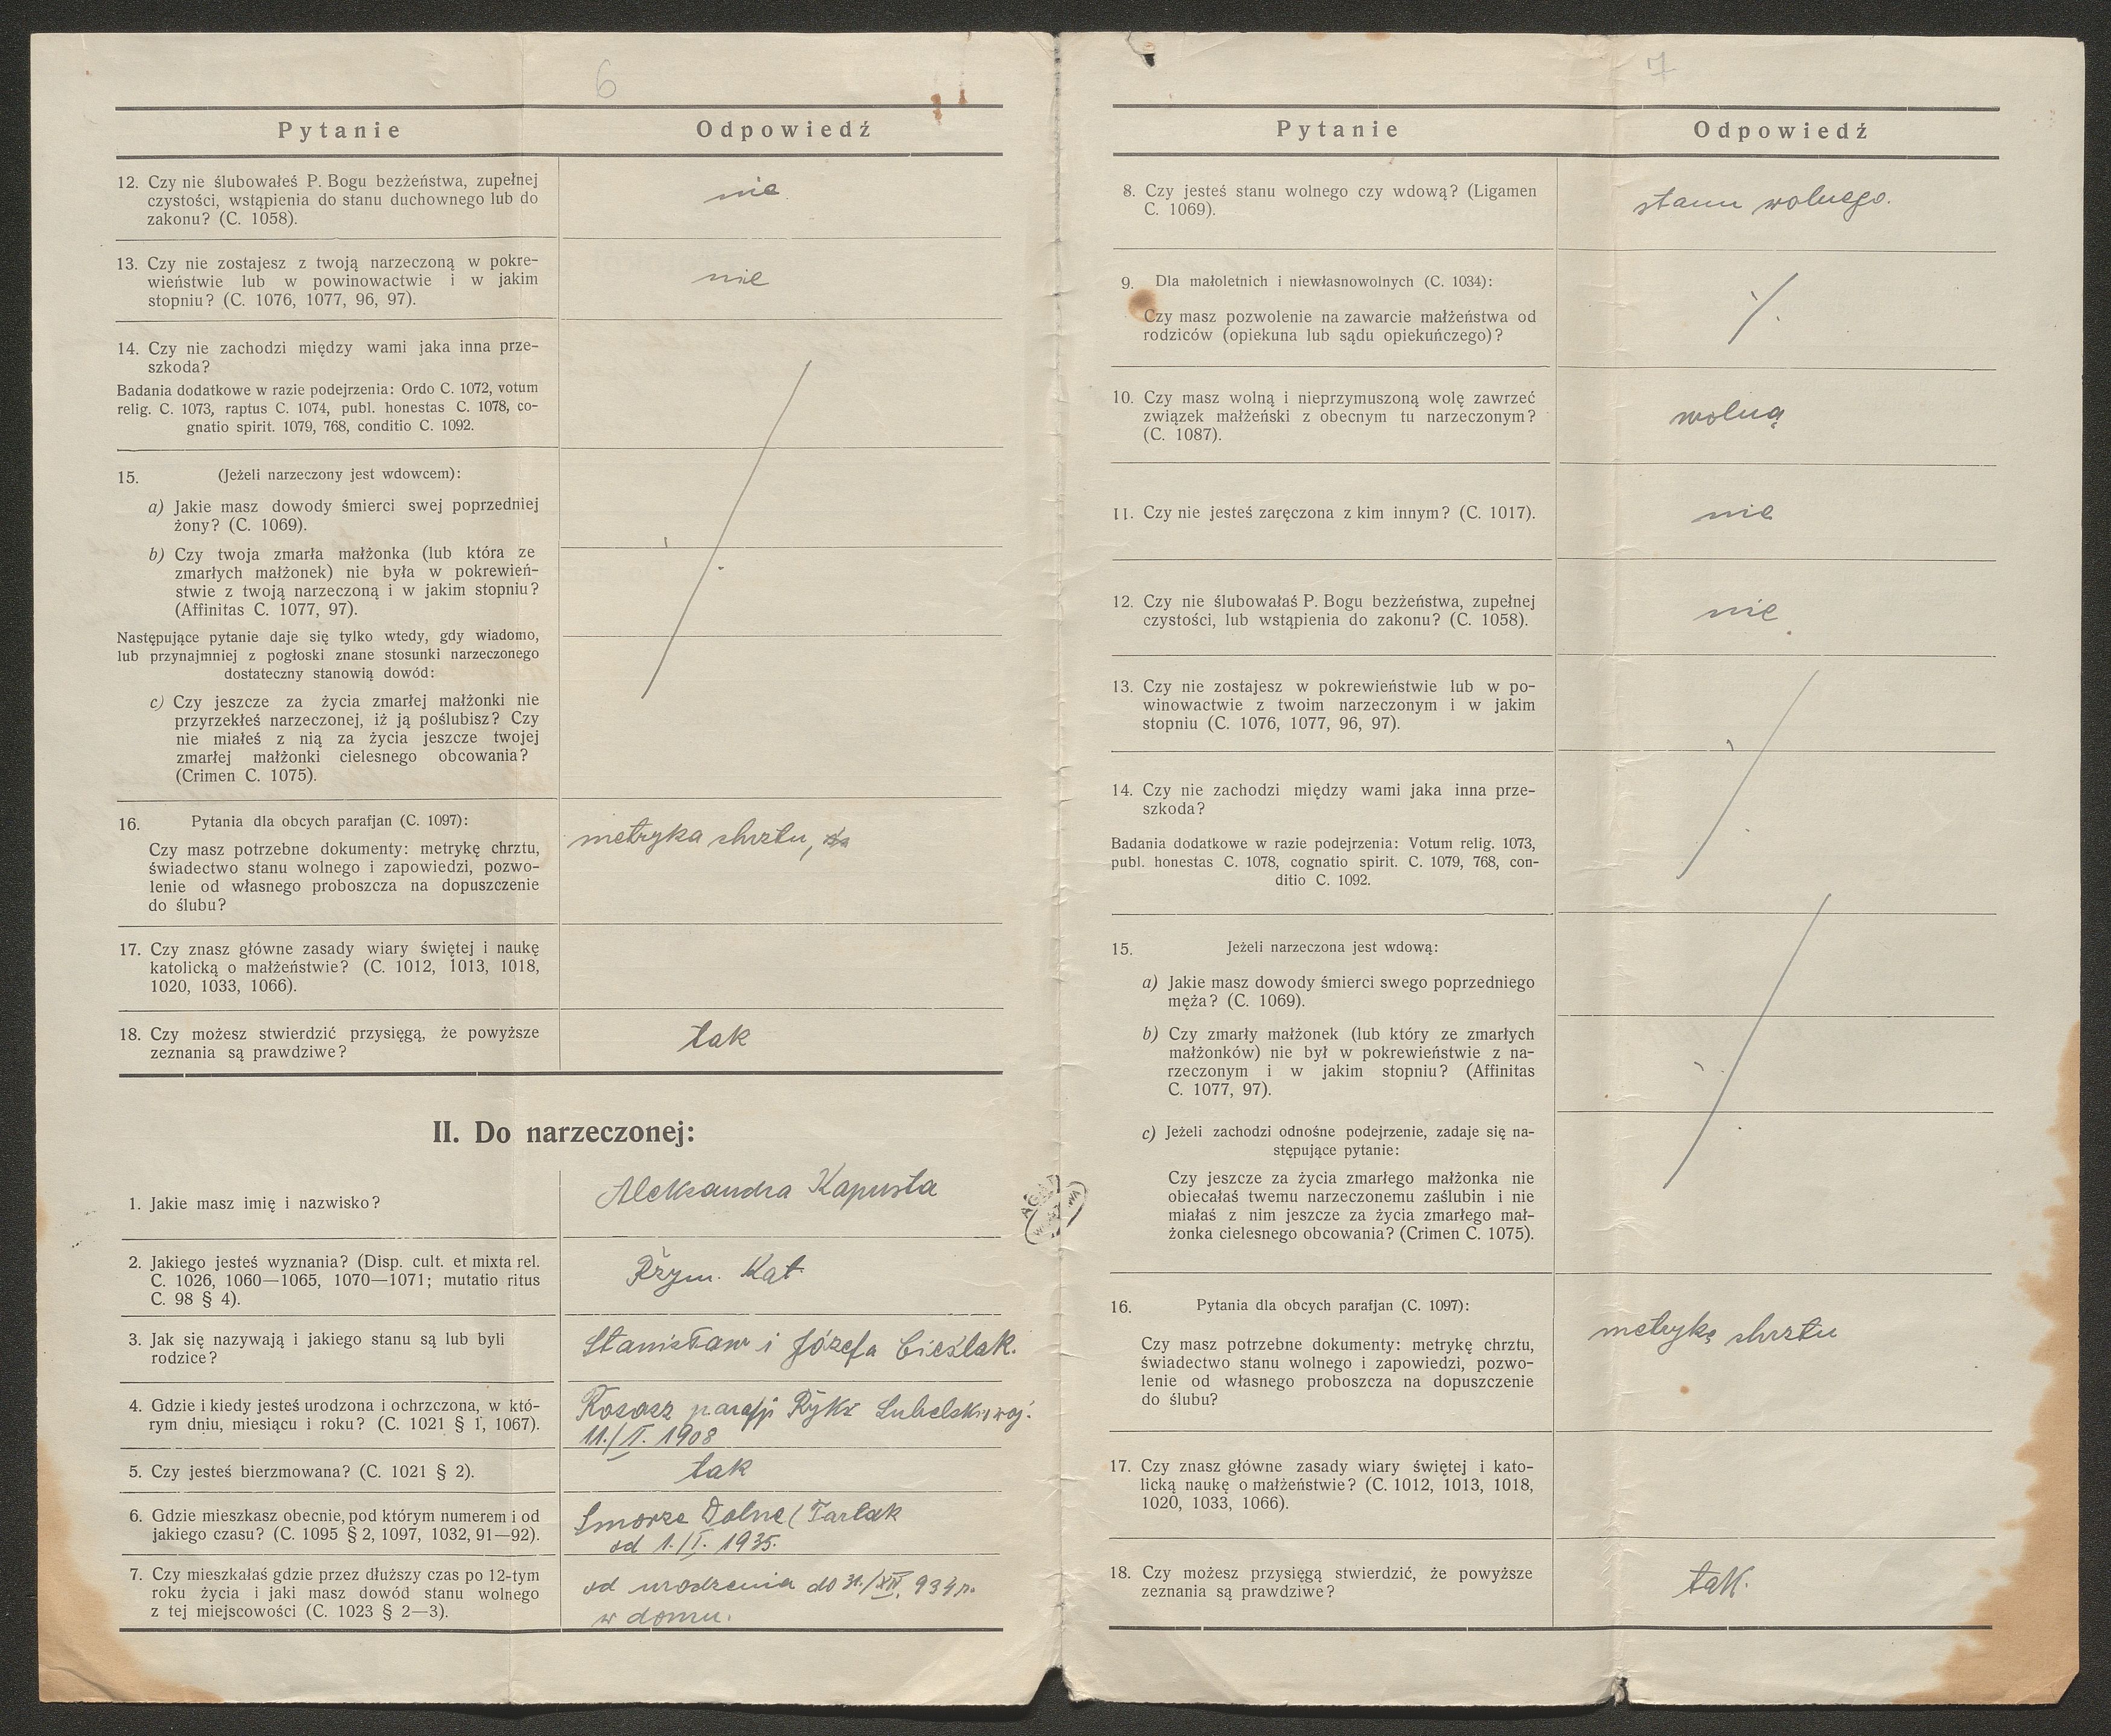 6
Pytanie
Odpowiedź
12. Czy nie ślubowałeś P. Bogu bezżeństwa, zupełnej
czystości, wstąpienia do stanu duchownego lub do
zakonu? (C. 1058).
nie
13. Czy nie zostajesz z twoją narzeczoną w pokre-
wieństwie lub w powinowactwie i w jakim
stopniu? (C. 1076, 1077, 96, 97).
nie
14. Czy nie zachodzi między wami jaka inna prze-
szkoda?
Badania dodatkowe w razie podejrzenia: Ordo C. 1072, votum
relig. C. 1073, raptus C. 1074, publ. honestas C. 1078, co-
gnatio spirit. 1079, 768, conditio C. 1092.
15. (Jeżeli narzeczony jest wdowcem):
a) Jakie masz dowody śmierci swej poprzedniej
żony? (C. 1069).
b) Czy twoja zmarła małżonka (lub która ze
zmarłych małżonek) nie była w pokrewień-
stwie z twoją narzeczoną i w jakim stopniu?
(Affinitas C. 1077, 97).
Następujące pytanie daje się tylko wtedy, gdy wiadomo,
lub przynajmniej z pogłoski znane stosunki narzeczonego
dostateczny stanowią dowód:
c) Czy jeszcze za życia zmarłej małżonki nie
przyrzekłeś narzeczonej, iż ją poślubisz? Czy
nie miałeś z nią za życia jeszcze twojej
zmarłej małżonki cielesnego obcowania?
(Crimen C. 1075).
16. Pytania dla obcych parafjan (C. 1097):
Czy masz potrzebne dokumenty: metrykę chrztu,
świadectwo stanu wolnego i zapowiedzi, pozwo-
lenie od własnego proboszcza na dopuszczenie
do ślubu?
metryka chrztu,
17. Czy znasz główne zasady wiary świętej i naukę
katolicką o małżeństwie? (C. 1012, 1013, 1018,
1020, 1033, 1066).
18. Czy możesz stwierdzić przysięgą, że powyższe
zeznania są prawdziwe?
tak
II. Do narzeczonej:
1. Jakie masz imię i nazwisko?
Aleksandra Kapusta
2. Jakiego jesteś wyznania? (Disp. cult. et mixta rel.
C. 1026, 1060—1065, 1070—1071; mutatio ritus
C. 98 § 4).
Rzym. Kat.
3. Jak się nazywają i jakiego stanu są lub byli
rodzice?
Stanisław i Józefa Cieślak.
4. Gdzie i kiedy jesteś urodzona i ochrzczona, w któ-
rym dniu, miesiącu i roku? (C. 1021 § 1, 1067).
Rososz parafji Ryki Lubelski woj.
11./I. 1908
5. Czy jesteś bierzmowana? (C. 1021 § 2).
tak
6. Gdzie mieszkasz obecnie, pod którym numerem i od
jakiego czasu? (C. 1095 § 2, 1097, 1032, 91—92).
Smorze Dolne (Tartak
od 1./I. 1935.
7. Czy mieszkałaś gdzie przez dłuższy czas po 12-tym
roku życia i jaki masz dowód stanu wolnego
z tej miejscowości (C. 1023 § 2—3).
od urodzenia do 31./XII. 934 r.
w domu.
7
Pytanie
Odpowiedź
8. Czy jesteś stanu wolnego czy wdową? (Ligamen
C. 1069).
stanu wolnego.
9. Dla małoletnich i niewłasnowolnych (C. 1034):
Czy masz pozwolenie na zawarcie małżeństwa od
rodziców (opiekuna lub sądu opiekuńczego)?
10. Czy masz wolną i nieprzymuszoną wolę zawrzeć
związek małżeński z obecnym tu narzeczonym?
(C. 1087).
wolną
11. Czy nie jesteś zaręczona z kim innym? (C. 1017).
nie
12. Czy nie ślubowałaś P. Bogu bezżeństwa, zupełnej
czystości, lub wstąpienia do zakonu? (C. 1058).
nie
13. Czy nie zostajesz w pokrewieństwie lub w po-
winowactwie z twoim narzeczonym i w jakim
stopniu (C. 1076, 1077, 96, 97).
14. Czy nie zachodzi między wami jaka inna prze-
szkoda?
Badania dodatkowe w razie podejrzenia: Votum relig. 1073,
publ. honestas C. 1078, cognatio spirit. C. 1079, 768, con-
ditio C. 1092.
15. Jeżeli narzeczona jest wdową:
a) Jakie masz dowody śmierci swego poprzedniego
męża? (C. 1069).
b) Czy zmarły małżonek (lub który ze zmarłych
małżonków) nie był w pokrewieństwie z na-
rzeczonym i w jakim stopniu? (Affinitas
C. 1077, 97).
c) Jeżeli zachodzi odnośne podejrzenie, zadaje się na-
stępujące pytanie:
Czy jeszcze za życia zmarłego małżonka nie
obiecałaś twemu narzeczonemu zaślubin i nie
miałaś z nim jeszcze za życia zmarłego mał-
żonka cielesnego obcowania? (Crimen C. 1075).
16. Pytania dla obcych parafjan (C. 1097):
Czy masz potrzebne dokumenty: metrykę chrztu,
świadectwo stanu wolnego i zapowiedzi, pozwo-
lenie od własnego proboszcza na dopuszczenie
do ślubu?
metrykę chrztu
17. Czy znasz główne zasady wiary świętej i kato-
licką naukę o małżeństwie? (C. 1012, 1013, 1018,
1020, 1033, 1066).
18. Czy możesz przysięgą stwierdzić, że powyższe
zeznania są prawdziwe?
tak.